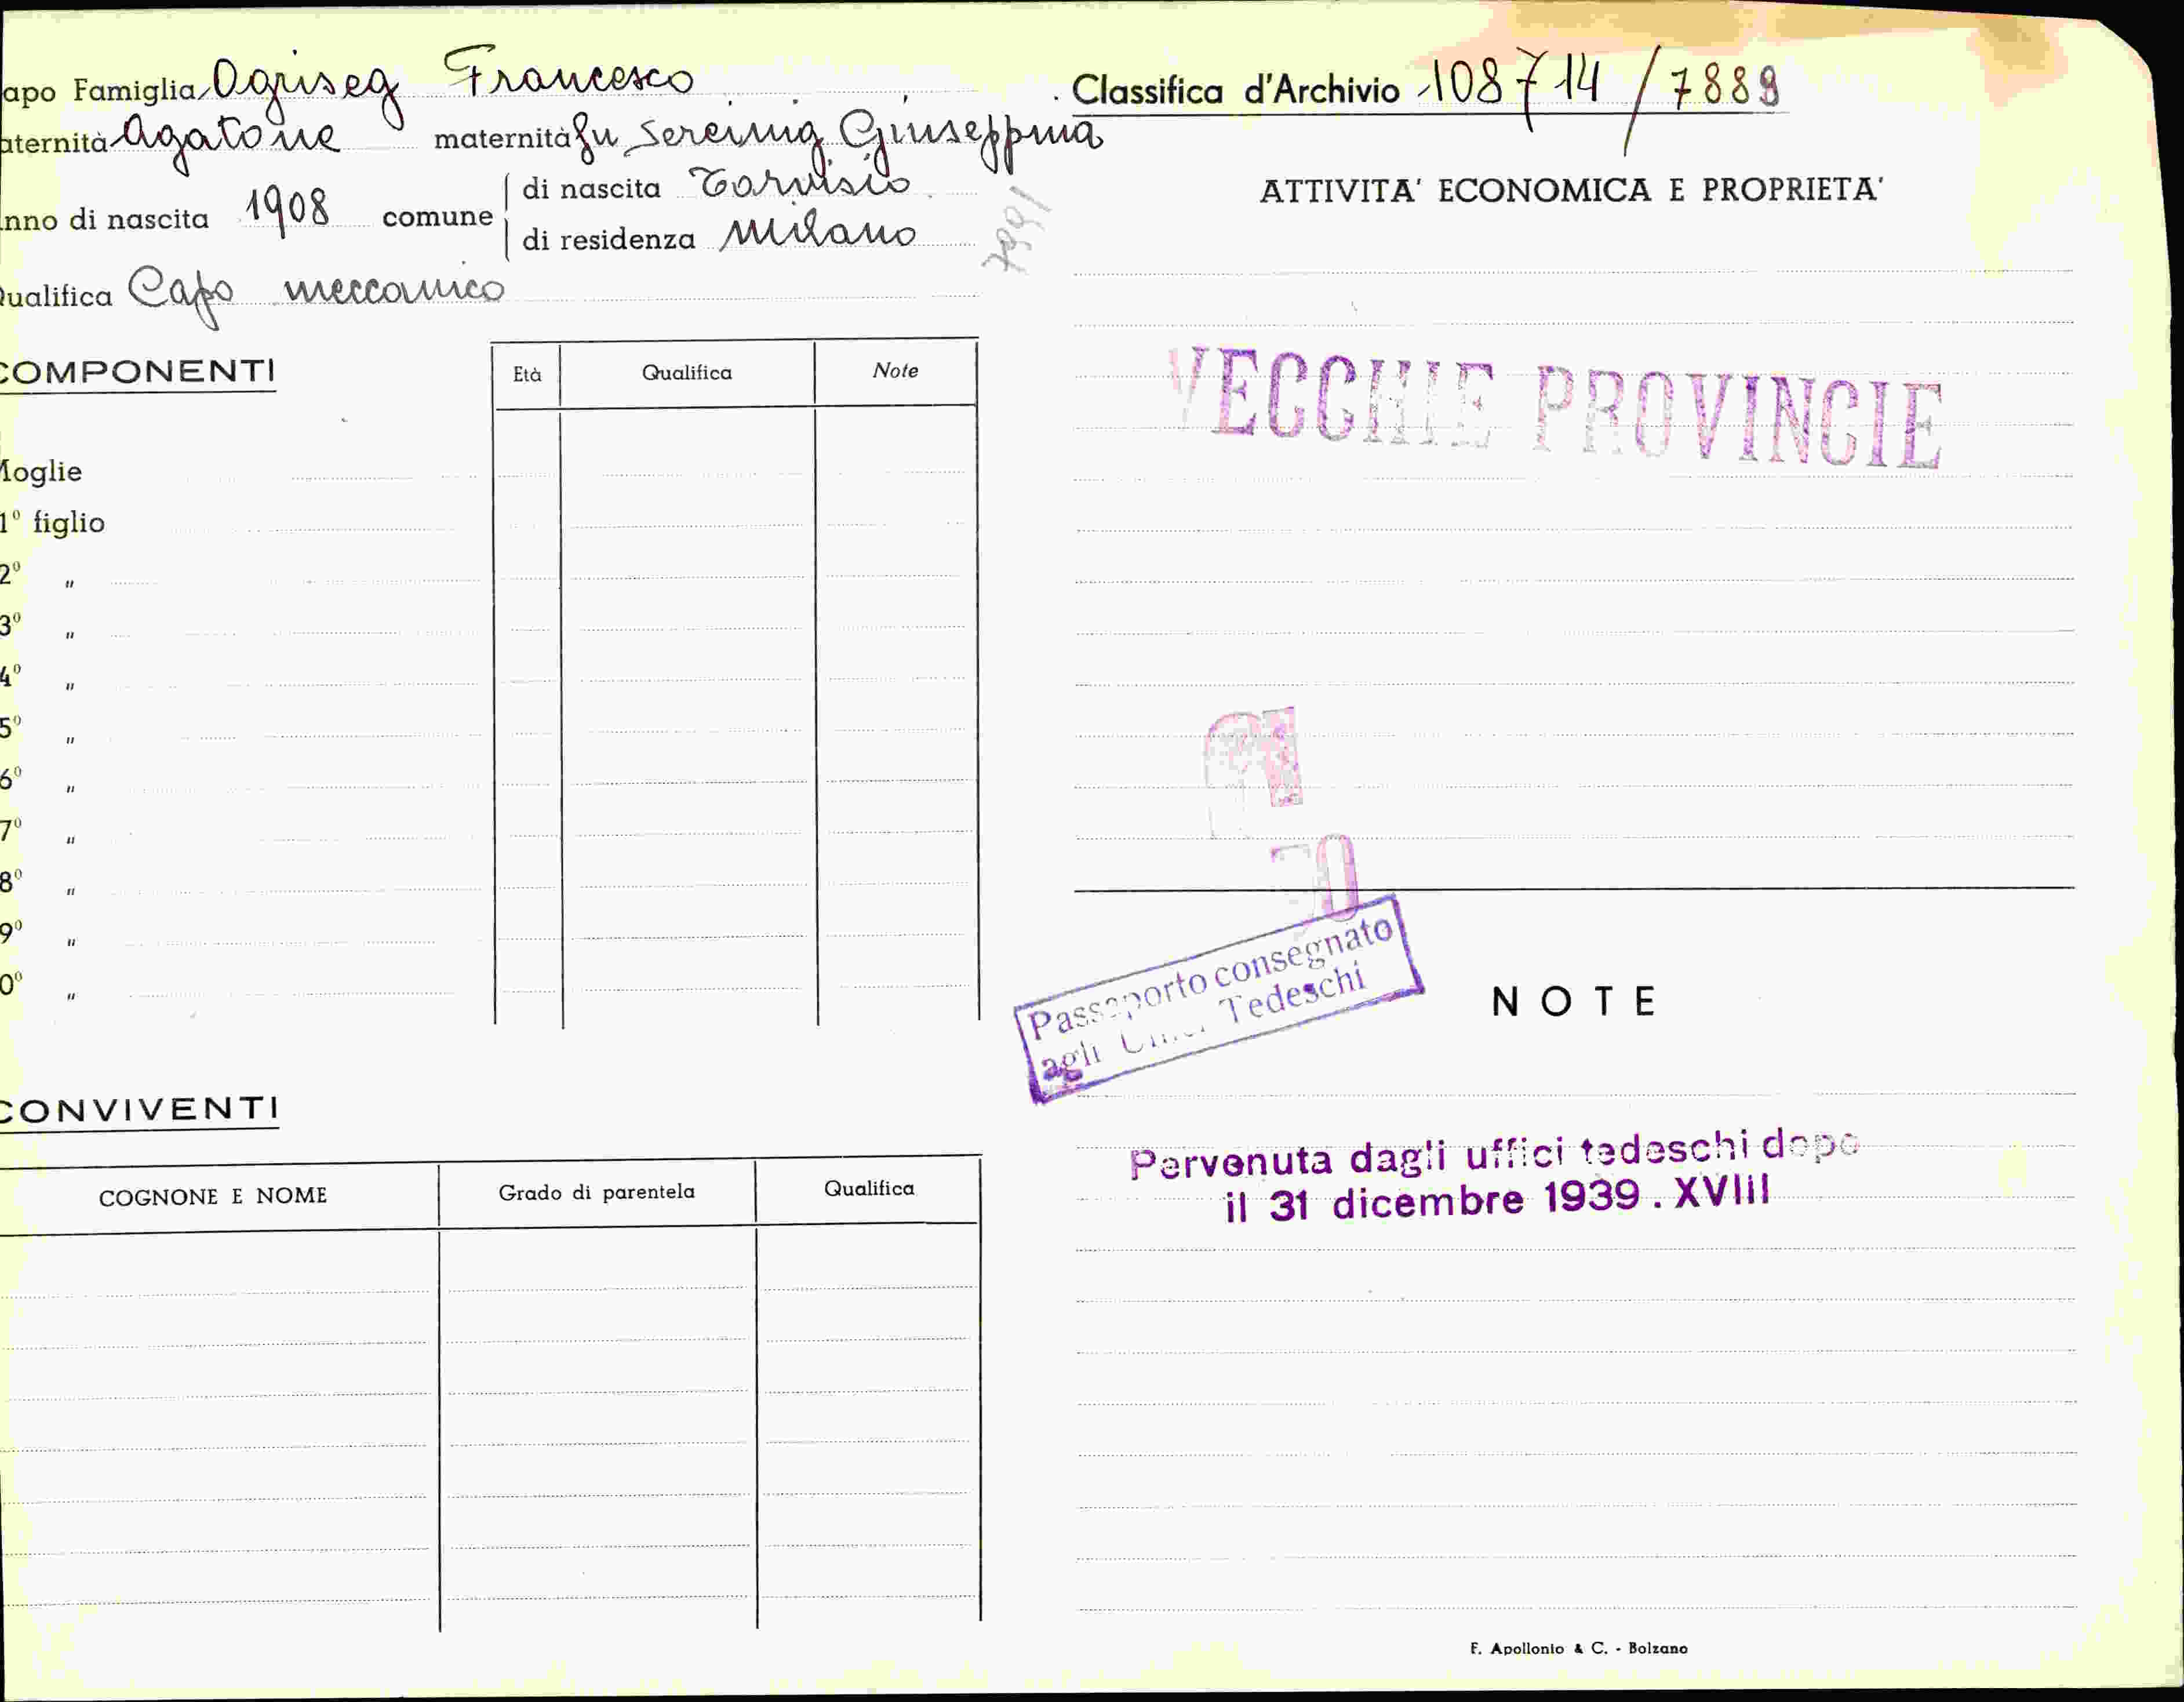 apo Famiglia Ogriseg Francesco
aternità Agatone maternità fu Sereinig Giuseppina
nno di nascita 1908 comune di nascita Tarvisio
di residenza Milano
ualifica Capo meccanico
Classifica d'Archivio 108714/7889
7991
ATTIVITA' ECONOMICA E PROPRIETA'
VECCHIE PROVINCIE
COMPONENTI Età Qualifica Note
Moglie
1º figlio
2º "
3º "
4º "
5º "
6º "
7º "
8º "
9º "
0º "
Passaporto consegnato
agli Tedeschi
NOTE
Pervenuta dagli uffici tedeschi dopo
il 31 dicembre 1939. XVIII
CONVIVENTI
COGNONE E NOME Grado di parentela Qualifica
F. Apollonio & C. - Bolzano